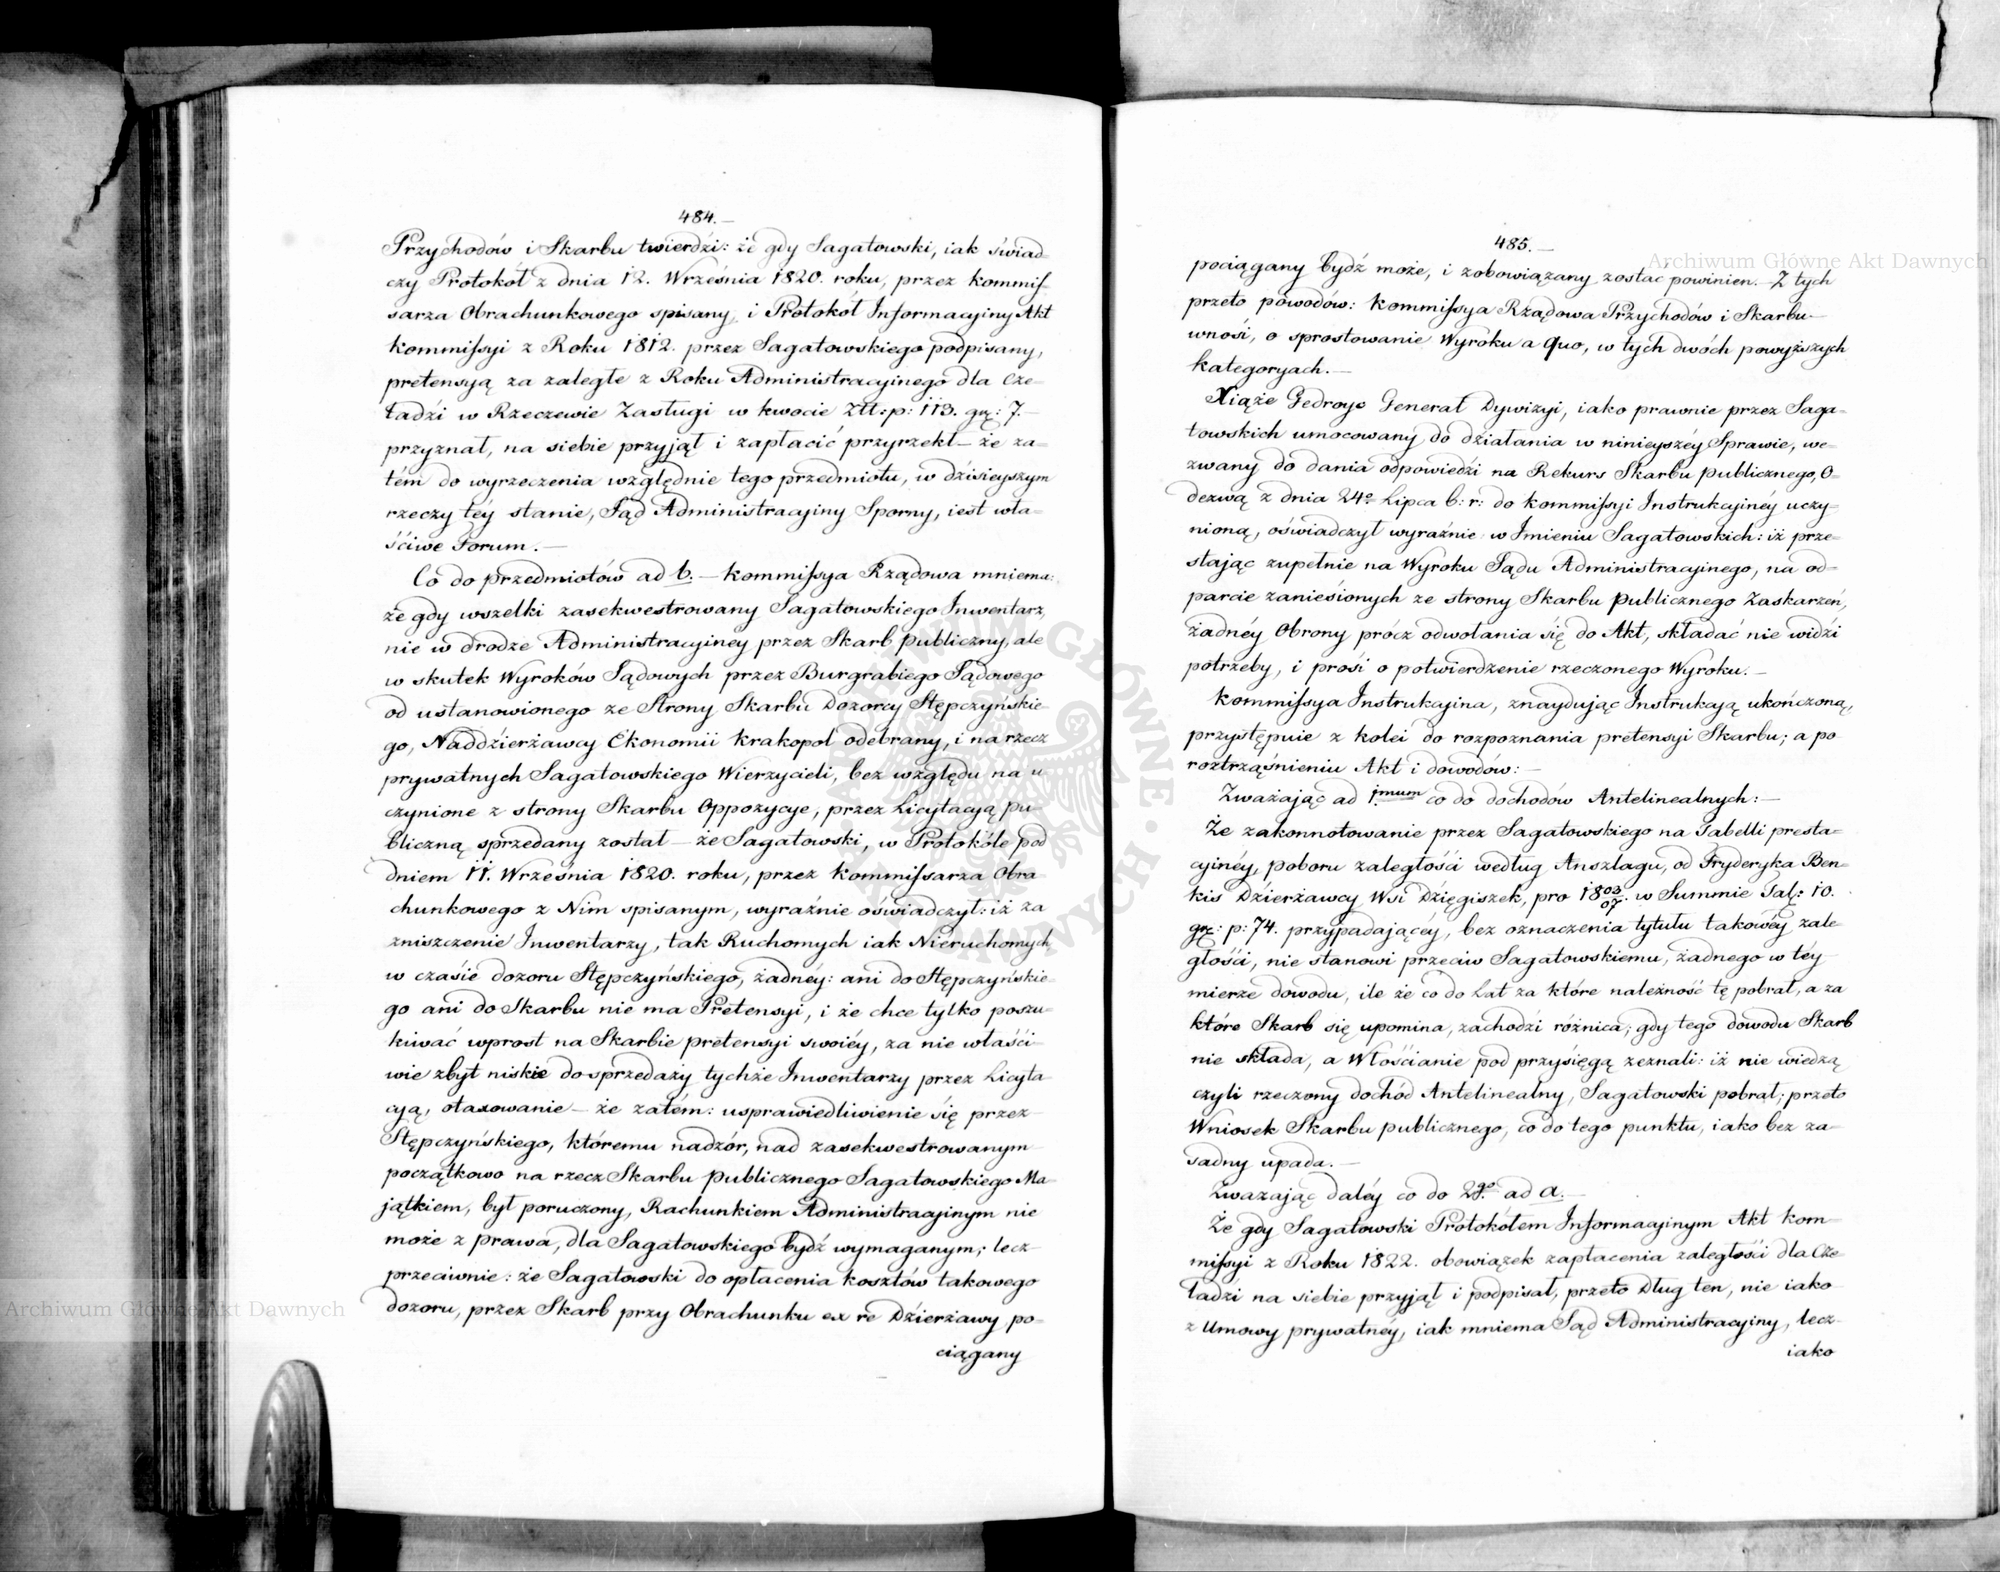 484.—
Przychodów i Skarbu twierdzi: że gdy Sagatowski, iak świad=
czy Protokół z dnia 12. Września 1820. roku, przez Kommis=
sarza Obrachunkowego spisany, i Protokół Informacyiny Akt
Kommissyi z Roku 1812. przez Sagatowskiego podpisany,
pretensyą za zaległe z Roku Administracyinego dla Cze=
ladzi w Rzeczewie Zasługi w kwocie Złł: p: 113. gr: 7.—
przyznał, na siebie przyjął i zapłacić przyrzekł — że za=
tém do wyrzeczenia względnie tego przedmiotu, w dzisieyszym
rzeczy téy stanie, Sąd Administracyiny Sporny, iest wła=
ściwe Forum.—
Co do przedmiotów ad b.— Kommissya Rządowa mniema:
że gdy wszelki zasekwestrowany Sagatowskiego Inwentarz,
nie w drodze Administracyiney przez Skarb publiczny, ale
w skutek Wyroków Sądowych przez Burgrabiego Sądowego
od ustanowionego ze Strony Skarbu Dozorcy Stępczyńskie=
go, Naddzierżawcy Ekonomii Krakopol odebrany, i na rzecz
prywatnych Sagatowskiego Wierzycieli, bez względu na u=
czynione z strony Skarbu Oppozycye, przez Licytacyą pu=
bliczną sprzedany został — że Sagatowski, w Protokóle pod
dniem 11. Września 1820. roku, przez Kommissarza Obra
chunkowego z Nim spisanym, wyraźnie oświadczył: iż za
zniszczenie Inwentarzy, tak Ruchomych iak Nieruchomych,
w czasie dozoru Stępczyńskiego, żadnéy: ani do Stępczyńskie=
go ani do Skarbu nie ma Pretensyi, i że chce tylko poszu=
kiwać wprost na Skarbie pretensyi swoiéy, za nie właści=
wie zbyt niskie do sprzedaży tychże Inwentarzy przez Licyta
cyą, otaxowanie — że zatém: usprawiedliwienie się przez
Stępczyńskiego, któremu nadzór, nad zasekwestrowanym
początkowo na rzecz Skarbu publicznego Sagatowskiego Ma=
jątkiem, był poruczony, Rachunkiem Administracyinym nie
może z prawa, dla Sagatowskiego bydź wymaganym; lecz
przeciwnie: że Sagatowski do opłacenia kosztów takowego
dozoru, przez Skarb przy Obrachunku ex re Dzierżawy po=
ciągany
485.—
pociągany bydź może, i zobowiązany zostac powinien.— Z tych
przeto powodów: Kommissya Rządowa Przychodów i Skarbu
wnosi, o sprostowanie Wyroku a quo, w tych dwóch powyższych
kategoryach.—
Xiąże Gedroyc Generał Dywizyi, iako prawnie przez Saga=
towskich umocowany do działania w ninieyszéy Sprawie, we=
zwany do dania odpowiedzi na Rekurs Skarbu publicznego, O=
dezwą z dnia 24º Lipca b: r: do Kommissyi Instrukcyinéy uczy=
nioną, oświadczył wyraźnie w Imieniu Sagatowskich: iż prze=
stając zupełnie na Wyroku Sądu Administracyinego, na od=
parcie zaniesionych ze strony Skarbu publicznego Zaskarzeń,
żadnéy Obrony prócz odwołania się do Akt, składać nie widzi
potrzeby, i prosi o potwierdzenie rzeczonego Wyroku.—
Kommissya Instrukcyina, znaydując Instrukcyą ukończoną,
przystępuie z kolei do rozpoznania pretensyi Skarbu; a po
roztrząśnieniu Akt i dowodów:—
Zważając ad 1mum co do dochodów Antelinealnych:—
Że zakonnotowanie przez Sagatowskiego na Tabelli presta=
cyinéy, poboru zaległości według Anszlagu, od Fryderyka Ben=
kis Dzierżawcy Wsi Dzięgiszek, pro 1803/07. w Summie Tal: 10.
gr: p: 74. przypadającéy, bez oznaczenia tytułu takowéy zale
głości, nie stanowi przeciw Sagatowskiemu, żadnego w téy
mierze dowodu, ile że co do Lat za które należność tę pobrał, a za
które Skarb się upomina, zachodzi różnica; gdy tego dowodu Skarb
nie składa, a Włościanie pod przysięgą zeznali: iż nie wiedzą
czyli rzeczony dochód Antelinealny, Sagatowski pobrał; przeto
Wniosek Skarbu publicznego, co do tego punktu, iako bez za=
sadny upada.—
Zwazając daléy co do 2go ad a.—
Że gdy Sagatowski Protokółem Informacyinym Akt Kom=
missyi z Roku 1822. obowiązek zapłacenia zaległości dla Cze
ladzi na siebie przyjął i podpisał, przeto Dług ten, nie iako
z Umowy prywatnéy, iak mniema Sąd Administracyiny, lecz
iako
Archiwum Główne Akt Dawnych
Archiwum Główne Akt Dawnych
ARCHIWUM GŁÓWNE AKT DAWNYCH